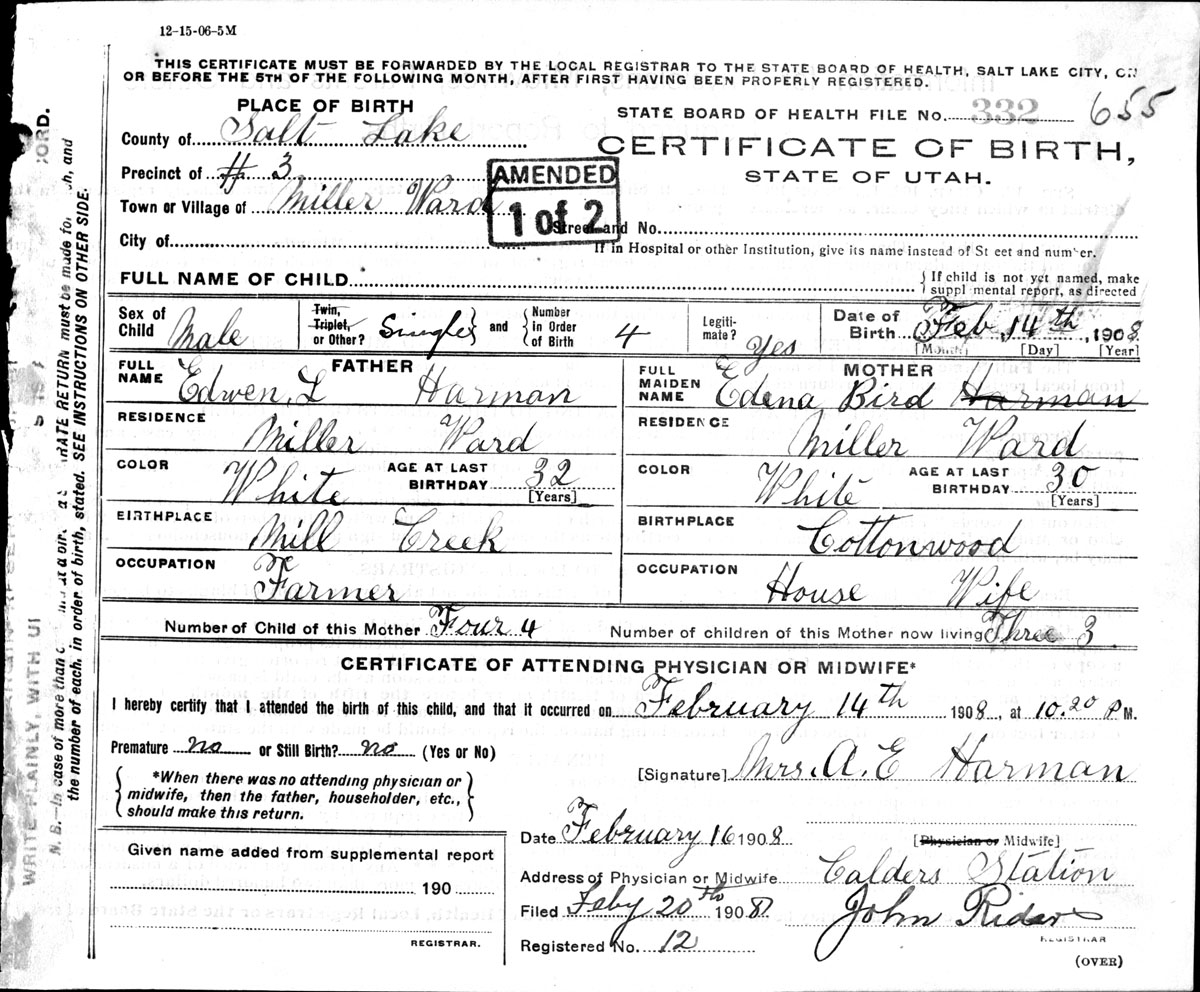 12-15-06-5M
THIS CERTIFICATE MUST BE FORWARDED BY THE LOCAL REGISTRAR TO THE STATE BOARD OF HEALTH, SALT LAKE CITY, ON
OR BEFORE THE 5TH OF THE FOLLOWING MONTH, AFTER FIRST HAVING BEEN PROPERLY REGISTERED.
PLACE OF BIRTH
County of Salt Lake
Precinct of # 3
Town or Village of Miller Ward
City of
AMENDED
1 of 2
STATE BOARD OF HEALTH FILE No. 332 655
CERTIFICATE OF BIRTH,
STATE OF UTAH.
Street and No.
If in Hospital or other Institution, give its name instead of St eet and number.
FULL NAME OF CHILD
{If child is not yet named, make
suppl mental report, as directed
Sex of Child Male
Twin, Triplet, or Other? Single} and {Number in Order of Birth 4
Legiti-mate? Yes
Date of Birth Feb 14th, 1908
[Month] [Day] [Year]
FATHER
FULL NAME Edwen, L Harman
RESIDENCE Miller Ward
COLOR White AGE AT LAST BIRTHDAY 32 [Years]
BIRTHPLACE Mill Creek
OCCUPATION Farmer
MOTHER
FULL MAIDEN NAME Edena Bird Harman
RESIDENCE Miller Ward
COLOR White AGE AT LAST BIRTHDAY 30 [Years]
BIRTHPLACE Cottonwood
OCCUPATION House Wife
Number of Child of this Mother Four 4 Number of children of this Mother now living Three 3
CERTIFICATE OF ATTENDING PHYSICIAN OR MIDWIFE*
I hereby certify that I attended the birth of this child, and that it occurred on February 14th 1908, at 10.20 P M.
Premature no or Still Birth? no (Yes or No)
{*When there was no attending physician or
midwife, then the father, householder, etc.,
should make this return.}
[Signature] Mrs. A. E Harman
Date February 16 1908 [Physician or Midwife]
Address of Physician or Midwife Calders Station
Filed Feby 20th 1908 John Rider
Registered No. 12 REGISTRAR
(OVER)
Given name added from supplemental report
190
REGISTRAR.
WRITE PLAINLY, WITH
N. B.—In case of more than RATE RETURN must be made for and
the number of each, in order of birth, stated. SEE INSTRUCTIONS ON OTHER SIDE.